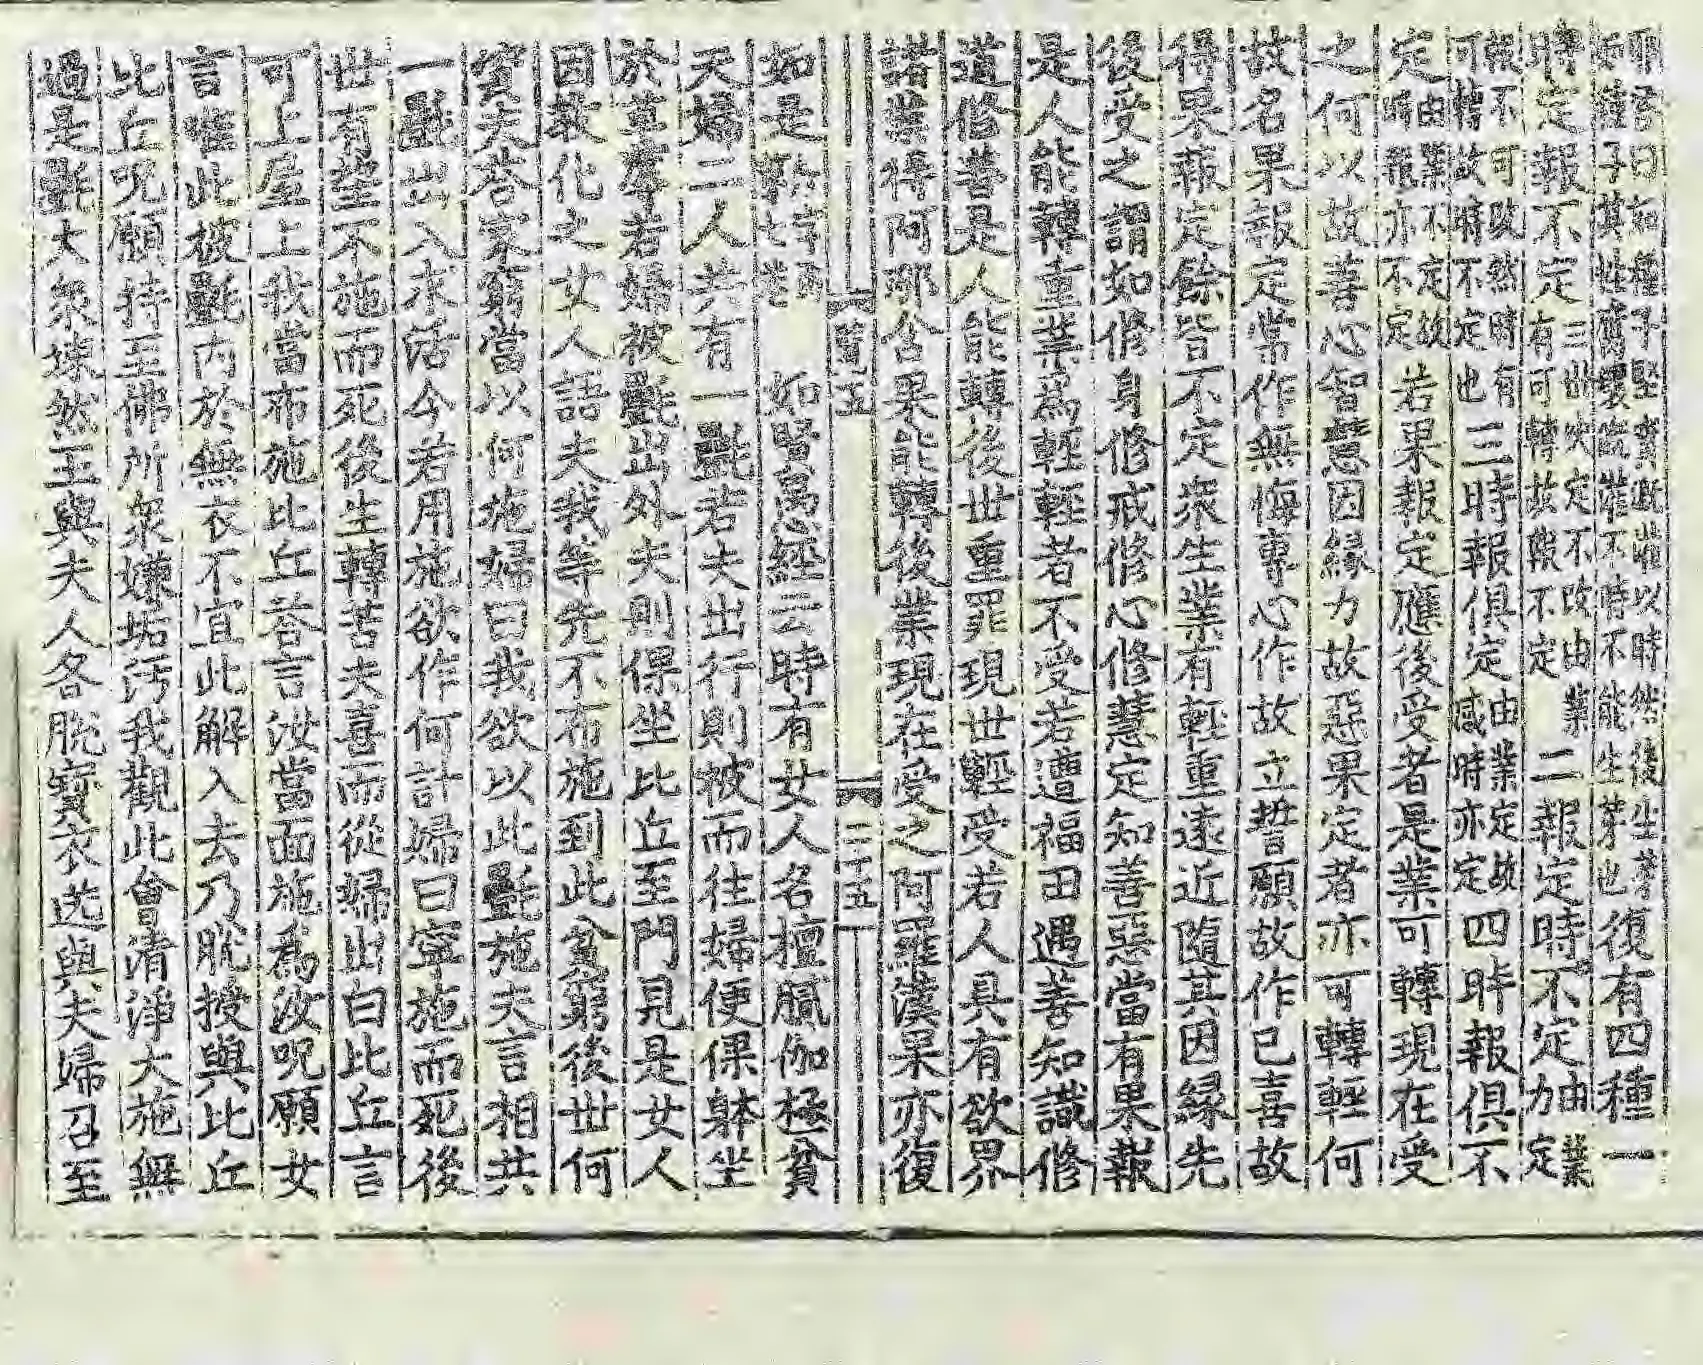 復有四種一
時定報不定三世決定不改由業有可轉故報不定二報定時不定由業力定
報不可改然時有可轉故時不定也三時報俱定由業定故感時亦定四時報俱不
定由業不定故時報亦不定若果報定應後受者是業可轉現在受
之何以故善心智慧因緣力故惡果定者亦可轉輕何
故名果報定常作無悔專心作故立誓願故作已喜故
得果報定餘皆不定衆生業有輕重遠近隨其因緣先
後受之謂如修身修戒修心修慧定知善惡當有果報
是人能轉重業為輕輕者不受若遭福田遇善知識修
道修善是人能轉後世重罪現世輕受若人具有欲界
諸業得阿那含果能轉後業現在受之阿羅漢果亦復
如是 如賢愚經云時有女人名檀膩伽極貧
夫婦二人共有一㲲若夫出行則被而往婦便倮躰坐
於草蓐若婦被㲲出外夫則倮坐比丘至門見是女人
因教化之女人語夫我等先不布施到此貧窮後世何
賓夫荅家窮當以何施婦曰我欲以此㲲施夫言相共
一㲲出入求活今若用施欲作何計婦曰寧施而死後
世有望不施而死後生轉苦夫喜而從婦出白比丘言
可上屋上我當布施比丘荅言汝當面施為汝呪願女
言唯此被㲲內於無衣不宜此解入去乃脫授與比丘
比丘呪願持至佛所衆嫌垢污我觀此會清淨大施無
過是㲲大衆竦然王與夫人各脫寶衣送與夫婦召至